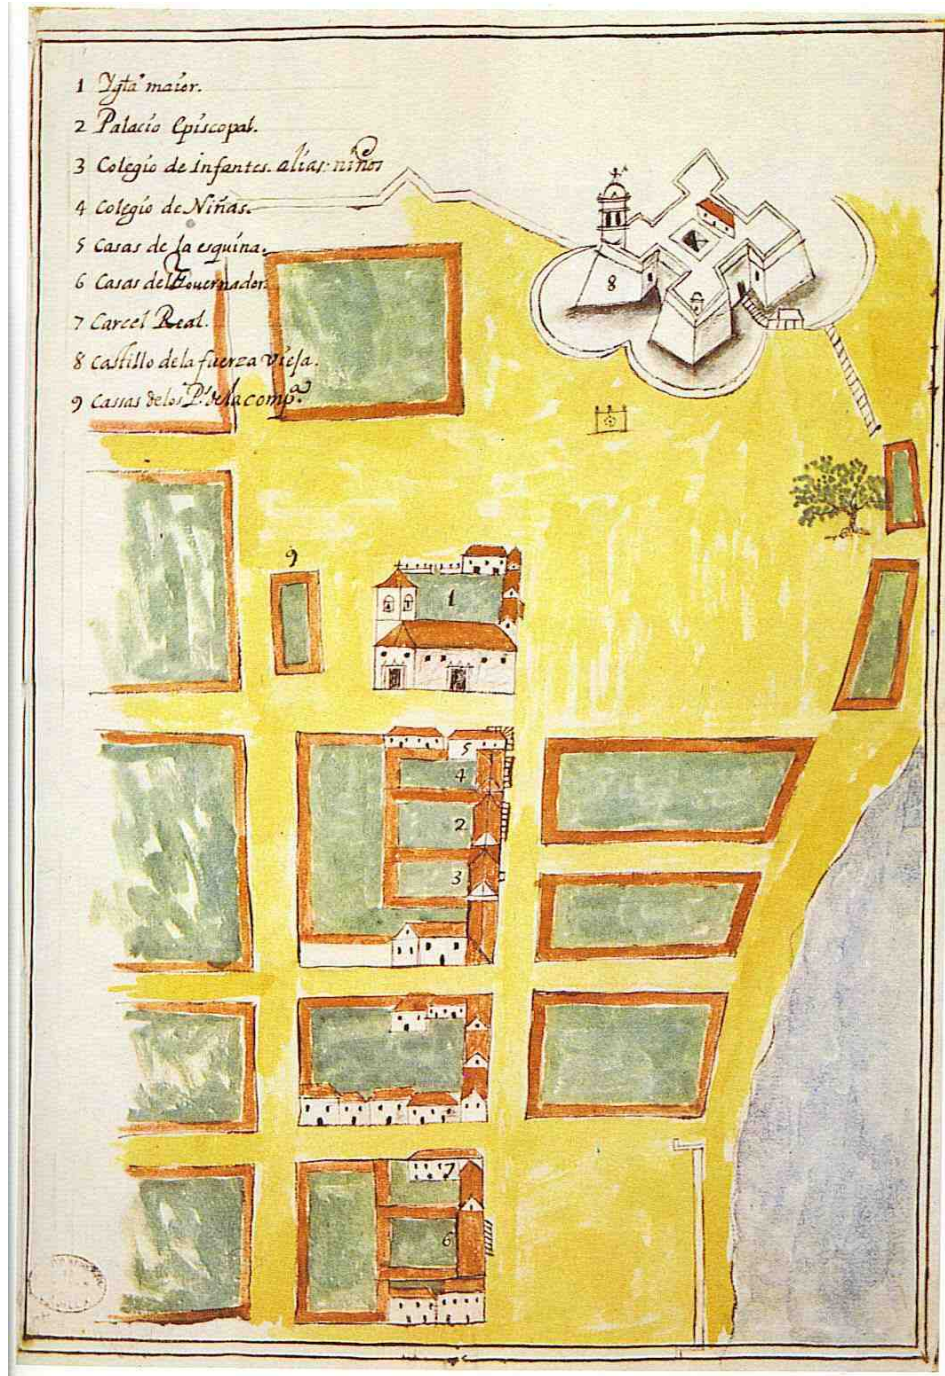 1 Ygtª maior.
2 Palacio Episcopal.
3 Colegio de infantes. alias: niños
4 Colegio de Niñas.
5 Casas de la esquina.
6 Casas del Governador.
7 Carcel Real.
8 Castillo de la fuerza vieja.
9 Cassas de los Pˢ de la compª
8
9
1
5
4
2
3
7
6